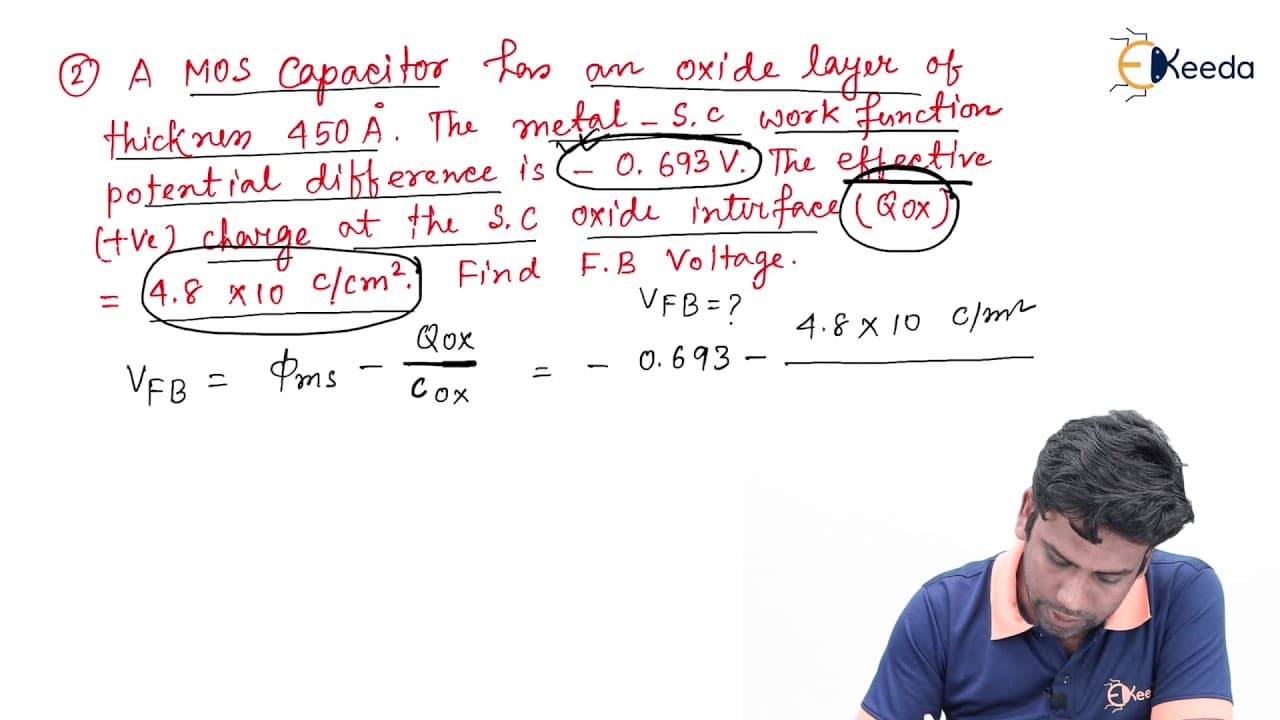 ② A MOS Capacitor has an oxide layer of
thickness 450 Å. The metal - S.C work function
potential difference is - 0.693 V. The effective
(+ve) charge at the S.C oxide interface (Qox)
= 4.8 × 10 C/cm². Find F.B Voltage.
VFB = ?
VFB = ϕms - Qox/Cox = - 0.693 - 4.8 × 10 C/m²
EKeeda
EKee